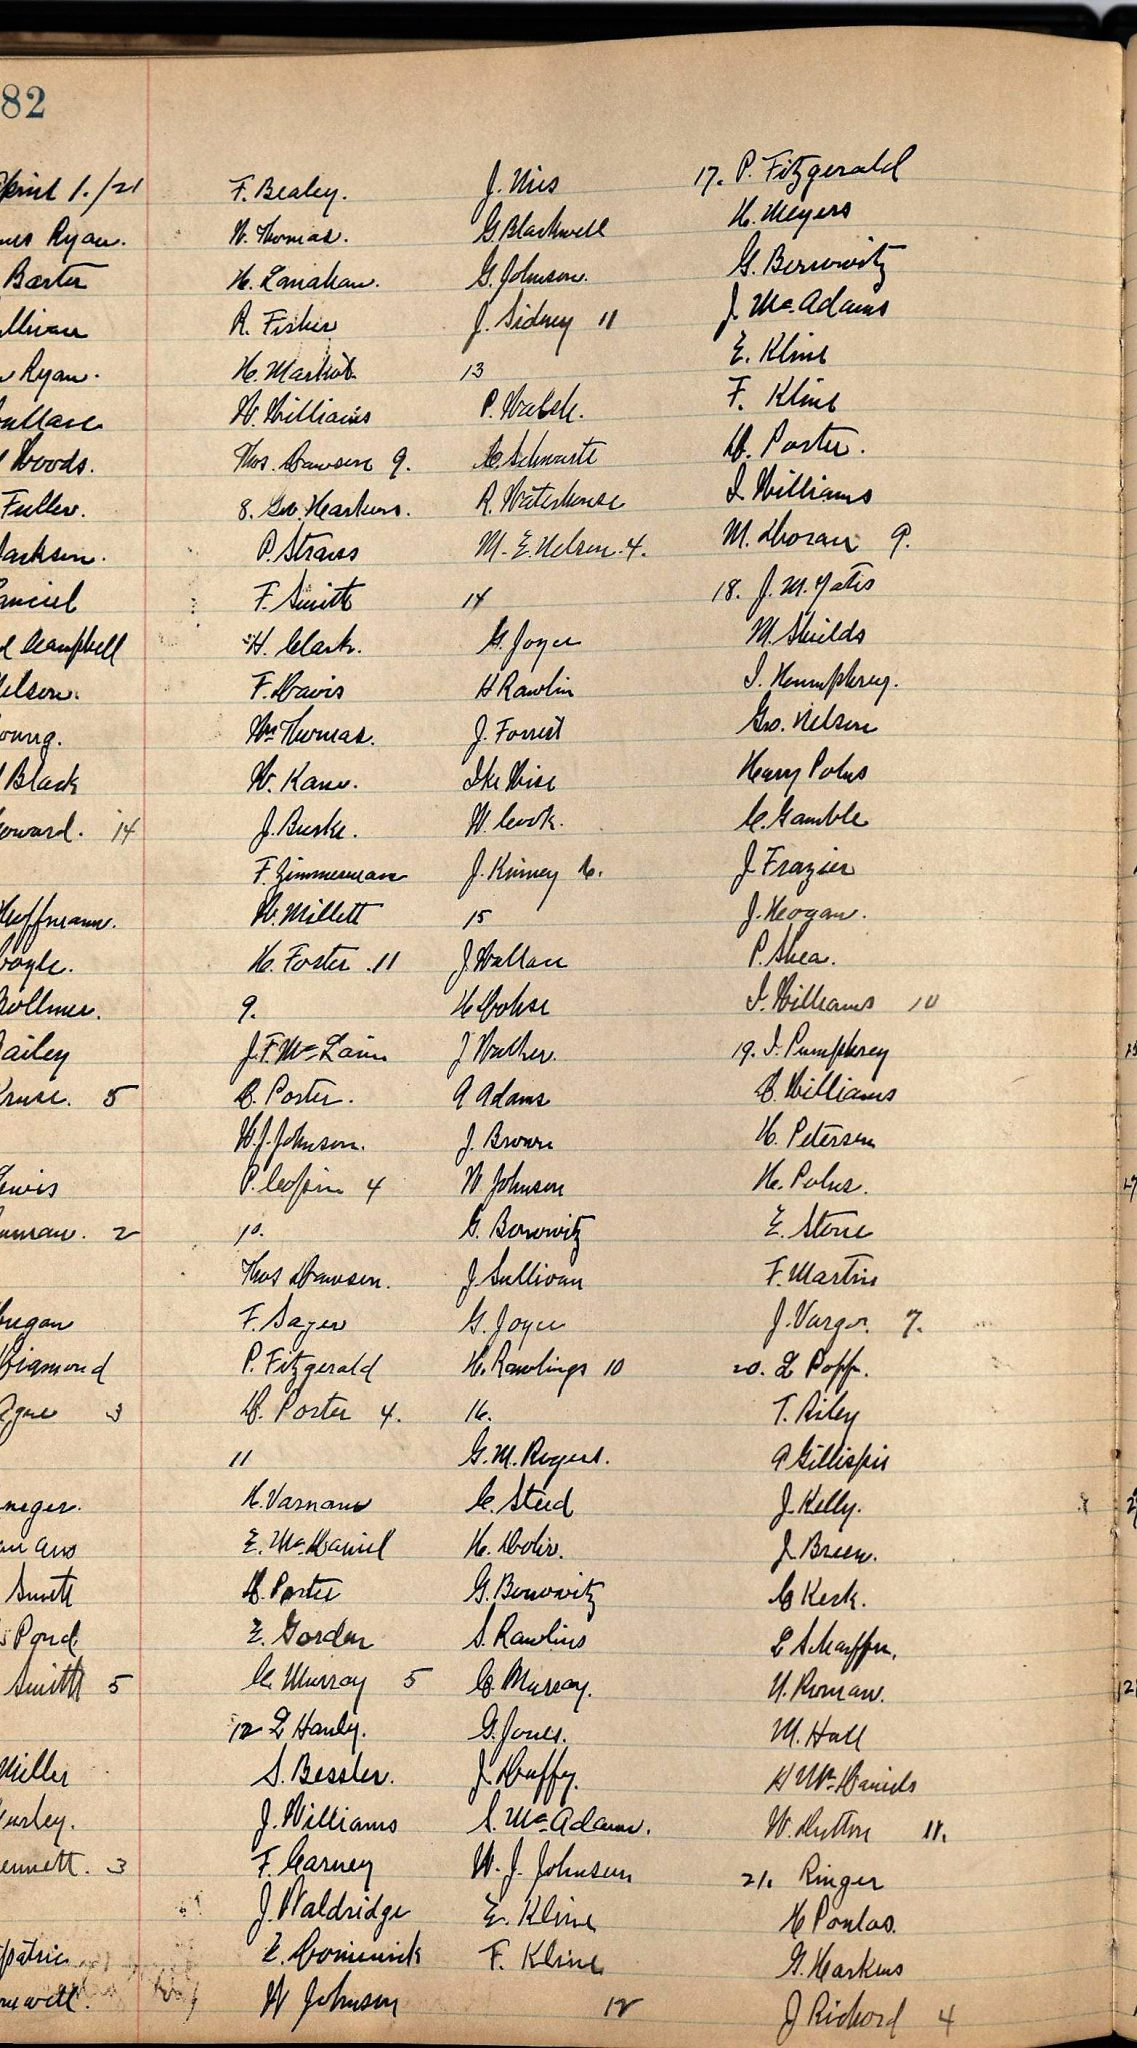 82
April 1./21
Ryan.
Barter
Ryan.
Woods.
Fuller.
Jackson.
Campbell
Nelson.
Young.
Black
Howard. 14
Hoffmann.
Doyle.
Bailey
Kruse. 5
Lewis
2
Diamond
3
Smith
Pond
Smith 5
Miller
Hurley.
Bennett. 3
F. Bealey.
W. Thomas.
H. Lanahan.
R. Fisher
H.
W. Williams
Thos. Dawson 9.
8. Geo. Harkins.
P. Strauss
F. Smith
H. Clark.
F. Davis
Wm Thomas.
W. Kane.
J. Burke.
F. Zimmerman
W. Millett
H. Foster. 11
9.
J. F. McLain
D. Porter.
W. J. Johnson.
P. 4
10.
Thos Dawson.
F. Sayer
P. Fitzgerald
D. Porter 4.
11
H. Varnam
E. McDaniel
D. Porter
E. Gorden
C. Murray 5
12 L Hanly.
S. Bessler.
J. Williams
F. Carney
J. Waldridge
E. Dominick
W Johnson
J.
G Blackwell
G. Johnson.
J. Sidney 11
13
P. Walsh.
C. Schwartz
R. Waterhouse
M. E. Nelson. 4.
14
G. Joyce
H Rawlin
J. Forrest
Ike Wise
W. Cook.
J. Kinney 6.
15
J. Wallace
H Dohse
J Walker.
A Adams
J. Brown
W. Johnson
G. Borowitz
J. Sullivan
G. Joyce
H. Rawlings 10
16.
G. M. Rogers.
C. Steed
H.
G. Borowitz
S. Rawlins
C. Murray.
G. Jones.
J. Duffy.
S. McAdams.
W. J. Johnson
E. Kline
F. Kline
12
17. P. Fitzgerald
H. Meyers
G. Berrowitz
J. McAdams
E. Kline
F. Kline
D. Porter.
I. Williams
M. Doran 9.
18. J. M. Yates
M. Shields
I. Humphrey.
Geo. Nelson
Henry Polus
C. Gamble
J Frazier
J. Hogan.
P. Shea.
I. Williams 10
19. I. Pumphrey
D. Williams
H. Petersen
H. Polus.
E. Stone
F. Martin
J. Varga. 7.
20. L Popp.
T. Riley
A Gillispie
J. Kelly.
J. Breen.
C Kerk.
L Schaffer.
N. Roman.
M. Hall
H McDaniels
W. Dutton 11.
21. Ringer
H Poulas.
G. Harkins
J Richard 4